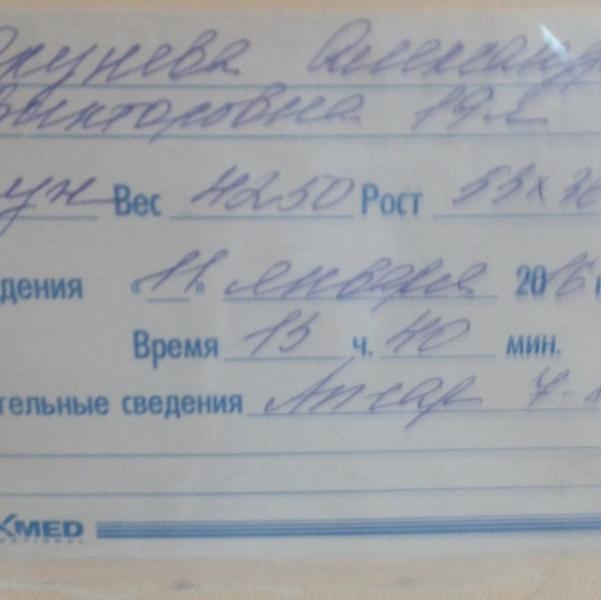 Окунева Александр
Викторовна 19 л
ун Вес 4250 Рост 53 х 36
дения "11" января 2016 г
Время 13 ч. 40 мин.
тельные сведения Апгар 7-8
XMED